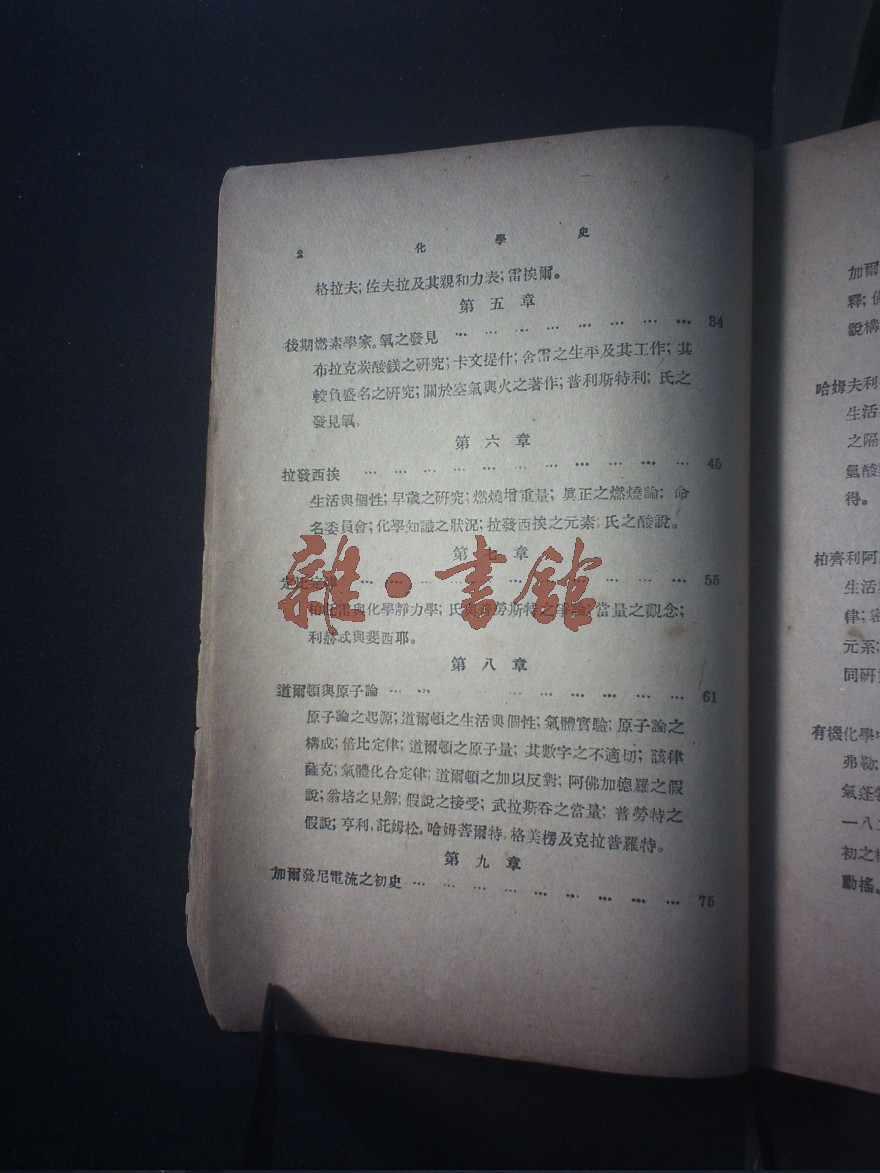 2 化學史
格拉夫;佐夫拉及其親和力表;雷挨爾。
第五章
後期燃素學家。氧之發見 … … … … … … … … 34
布拉克炭酸鎂之研究;卡文提什;舍雷之生平及其工作;其
較負盛名之研究;關於空氣與火之著作;普利斯特利;氏之
發見氧。
第六章
拉發西挨 … … … … … … … … … … … 45
生活與個性;早歲之研究;燃燒增重量;眞正之燃燒論;命
名委員會;化學知識之狀況;拉發西挨之元素;氏之酸說。
第七章
定比定律 … … … … … … … … … … … 55
雷與化學靜力學;氏與 勞斯特之爭論;當量之觀念;
利赫忒與斐西耶。
第八章
道爾頓與原子論 … … … … … … … … … … 61
原子論之起源;道爾頓之生活與個性;氣體實驗;原子論之
構成;倍比定律;道爾頓之原子量;其數字之不適切;該律
薩克;氣體化合定律;道爾頓之加以反對;阿佛加德羅之假
說;翁培之見解;假說之接受;武拉斯吞之當量;普勞特之
假說;亨利,託姆松。哈姆菩爾特,格美楞及克拉普羅特。
第九章
加爾發尼電流之初史 … … … … … … … … … 75
雜·書館
加爾
釋;
說構
哈姆夫利
生活
之隔
氫酸
得。
柏齊利阿
生活
律;
元系;
同研
有機化學
弗勒;
氣蓬
一八
初之
動搖。